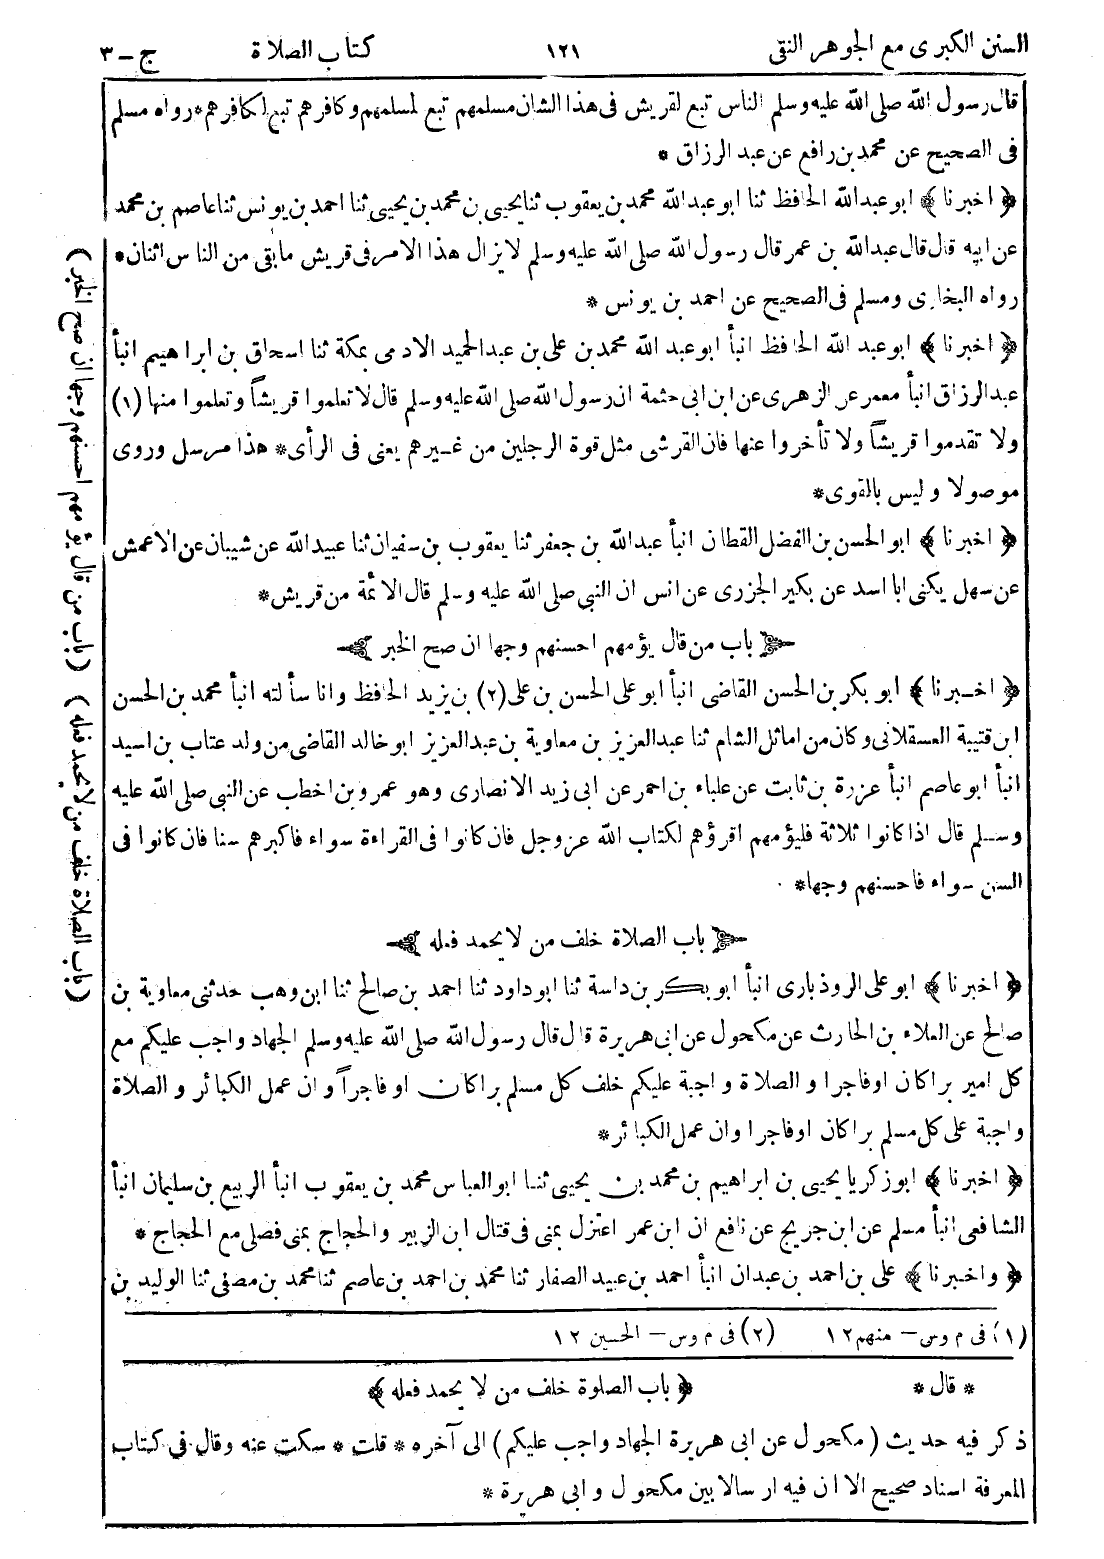 السنن الكبرى مع الجوهر النقى ١٢١ كتاب الصلاة ج - ٣
قال رسول الله صلى الله عليه وسلم الناس تبع لقريش فى هذا الشان مسلمهم تبع لمسلمهم وكافرهم تبع لكافرهم * رواه مسلم
فى الصحيح عن محمد بن رافع عن عبد الرزاق *
﴿ اخبرنا ﴾ ابو عبد الله الحافظ ثنا ابو عبد الله محمد بن يعقوب ثنا يحيى بن محمد بن يحيى ثنا احمد بن يونس ثنا عاصم بن محمد
عن ابيه قال قال عبد الله بن عمر قال رسول الله صلى الله عليه وسلم لا يزال هذا الامر فى قريش ما بقى من الناس اثنان *
رواه البخارى ومسلم فى الصحيح عن احمد بن يونس *
﴿ اخبرنا ﴾ ابو عبد الله الحافظ انبأ ابو عبد الله محمد بن على بن عبد الحميد الادمى بمكة ثنا اسحاق بن ابراهيم انبأ
عبد الرزاق انبأ معمر عن الزهرى عن ابن ابى حثمة ان رسول الله صلى الله عليه وسلم قال لا تعلموا قريشاً وتعلموا منها (١)
ولا تقدموا قريشاً ولا تأخروا عنها فان القرشى مثل قوة الرجلين من غيرهم يعنى فى الرأى * هذا مرسل وروى
موصولا وليس بالقوى *
﴿ اخبرنا ﴾ ابو الحسن بن الفضل القطان انبأ عبد الله بن جعفر ثنا يعقوب بن سفيان ثنا عبيد الله عن شيبان عن الاعمش
عن سهل يكنى ابا اسد عن بكير الجزرى عن انس ان النبى صلى الله عليه وسلم قال الائمة من قريش *
باب من قال يؤمهم احسنهم وجها ان صح الخبر
﴿ اخبرنا ﴾ ابو بكر بن الحسن القاضى انبأ ابو على الحسن بن على (٢) بن يزيد الحافظ وانا سألته انبأ محمد بن الحسن
ابن قتيبة العسقلانى وكان من اماثل الشام ثنا عبد العزيز بن معاوية بن عبد العزيز ابو خالد القاضى من ولد عتاب بن اسيد
انبأ ابو عاصم انبأ عزرة بن ثابت عن علباء بن احمر عن ابى زيد الانصارى وهو عمرو بن اخطب عن النبى صلى الله عليه
وسلم قال اذا كانوا ثلاثة فليؤمهم اقرؤهم لكتاب الله عز وجل فان كانوا فى القراءة سواء فاكبرهم سنا فان كانوا فى
السن سواء فاحسنهم وجها *
باب الصلاة خلف من لا يحمد فعله
﴿ اخبرنا ﴾ ابو على الروذبارى انبأ ابو بكر بن داسة ثنا ابو داود ثنا احمد بن صالح ثنا ابن وهب حدثنى معاوية بن
صالح عن العلاء بن الحارث عن مكحول عن ابى هريرة قال قال رسول الله صلى الله عليه وسلم الجهاد واجب عليكم مع
كل امير برا كان او فاجرا والصلاة واجبة عليكم خلف كل مسلم برا كان او فاجراً وان عمل الكبائر والصلاة
واجبة على كل مسلم برا كان او فاجرا وان عمل الكبائر *
﴿ اخبرنا ﴾ ابو زكريا يحيى بن ابراهيم بن محمد بن يحيى ثنا ابو العباس محمد بن يعقوب انبأ الربيع بن سليمان انبأ
الشافعى انبأ مسلم عن ابن جريج عن نافع ان ابن عمر اعتزل بمنى فى قتال ابن الزبير والحجاج بمنى فصلى مع الحجاج *
﴿ واخبرنا ﴾ على بن احمد بن عبدان انبأ احمد بن عبيد الصفار ثنا محمد بن احمد بن عاصم ثنا محمد بن مصفى ثنا الوليد بن
(١) فى م وس - منهم ١٢ (٢) فى م وس - الحسين ١٢
* قال * ﴿ باب الصلوة خلف من لا يحمد فعله ﴾
ذكر فيه حديث (مكحول عن ابى هريرة الجهاد واجب عليكم) الى آخره * قلت * سكت عنه وقال فى كتاب
المعرفة اسناد صحيح الا ان فيه ارسالا بين مكحول وابى هريرة *
(باب من قال يؤمهم احسنهم وجها ان صح الخبر) (باب الصلاة خلف من لا يحمد فعله)